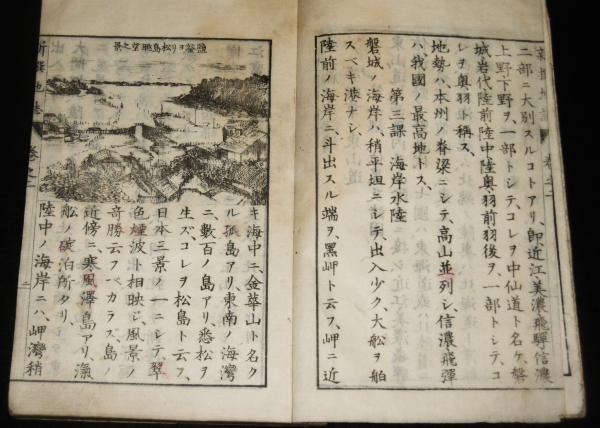 二部ニ大別スルコトアリ、即近江美濃飛騨信濃
上野下野ヲ、一部トシテ、コレヲ中仙道ト名ケ、磐
城岩代陸前陸中陸奥羽前羽後ヲ、一部トシテ、コ
レヲ奥羽ト稱ス、
地勢ハ、本州ノ脊梁ニシテ、高山並列シ、信濃飛彈
ハ、我國ノ最高地トス、
第三課 海岸水陸
磐城ノ海岸ハ、稍平坦ニシテ、出入少ク、大船ヲ舶
スベキ港ナシ、
陸前ノ海岸ニ、斗出スル端ヲ、黑岬ト云フ、岬ニ近
鹽竈ヨリ松島眺望之景
キ海中ニ、金華山ト名ク
ル孤島アリ、東南ノ海灣
ニ、數百ノ島アリ、悉松ヲ
生ズ、コレヲ松島ト云フ、
日本三景ノ一ニシテ、翠
色煙波ト相映ジ、風景ノ
奇勝云フベカラズ、島ノ
近傍ニ、寒風澤島アリ、瀛
船ノ碇泊所タリ、
陸中ノ海岸ニハ、岬灣稍
新撰地誌 卷之二 二